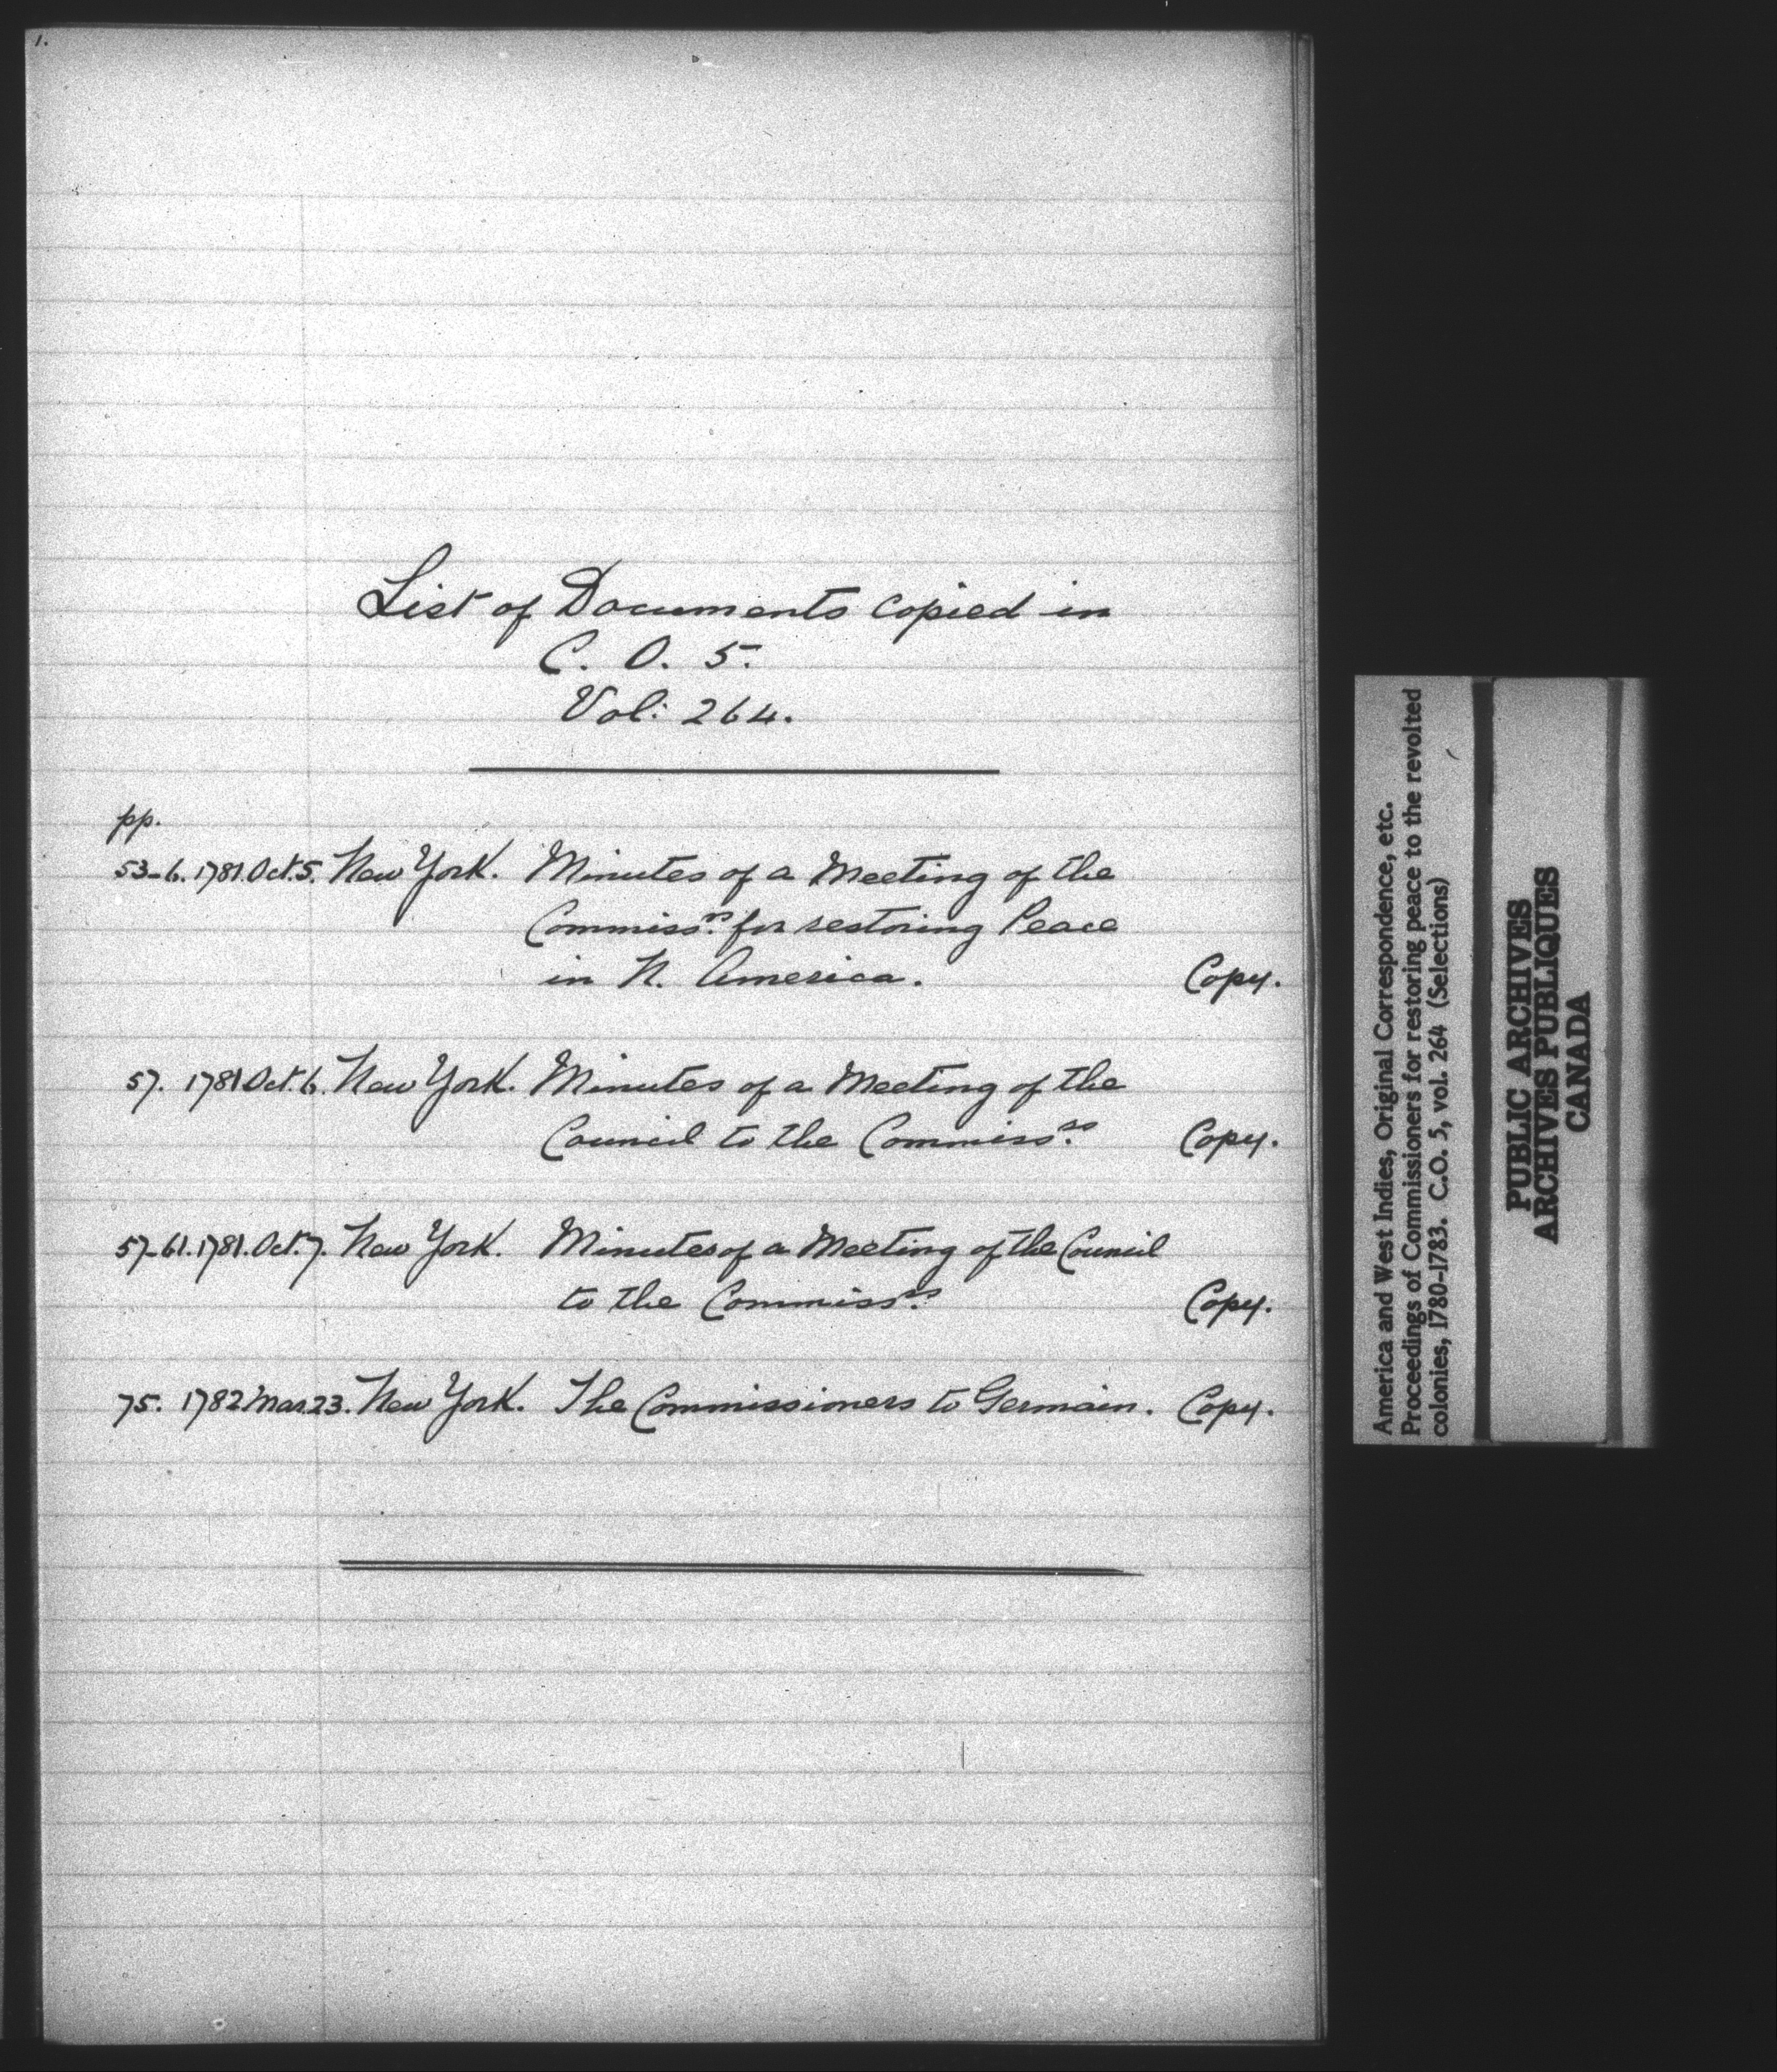 1.
List of Documents copied in
C. O. 5.
Vol: 264.
pp.
53-6. 1781. Oct. 5. New York. Minutes of a Meeting of the
Commiss.rs for restoring Peace
in N. America. Copy.
57. 1781 Oct. 6. New York. Minutes of a Meeting of the
Council to the Commiss.rs Copy.
57-61. 1781. Oct. 7. New York. Minutes of a Meeting of the Council
to the Commiss.rs Copy.
75. 1782 Mar. 23. New York. The Commissioners to Germain. Copy.
America and West Indies, Original Correspondence, etc.
Proceedings of Commissioners for restoring peace to the revolted
colonies, 1780-1783. C.O. 5, vol. 264 (Selections)
PUBLIC ARCHIVES
ARCHIVES PUBLIQUES
CANADA